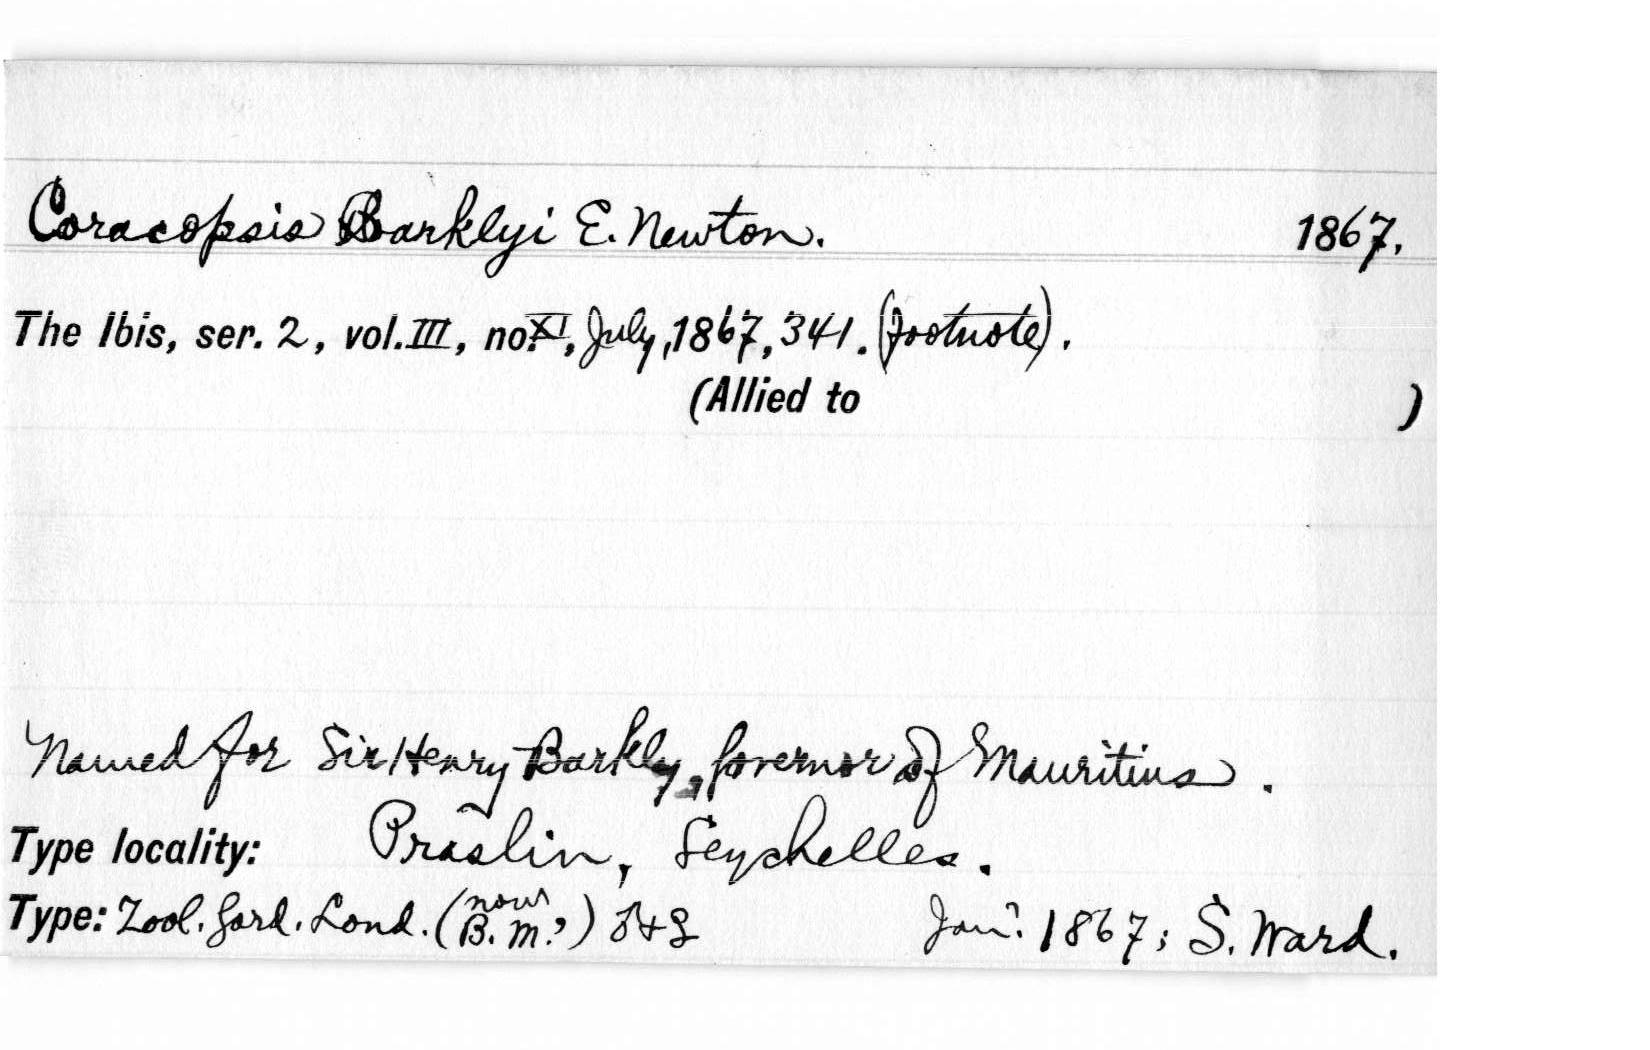 Coracopsis Barklyi E. Newton. 1867.
The Ibis, ser. 2, vol. III, no. XI, July, 1867, 341. (footnote).
(Allied to )
Named for Sir Henry Barkly, Governor of Mauritius.
Type locality: Praslin, Seychelles.
Type: Zool. Gard. Lond. (now B. M.?) ♂+♀ Jan? 1867; S. Ward.